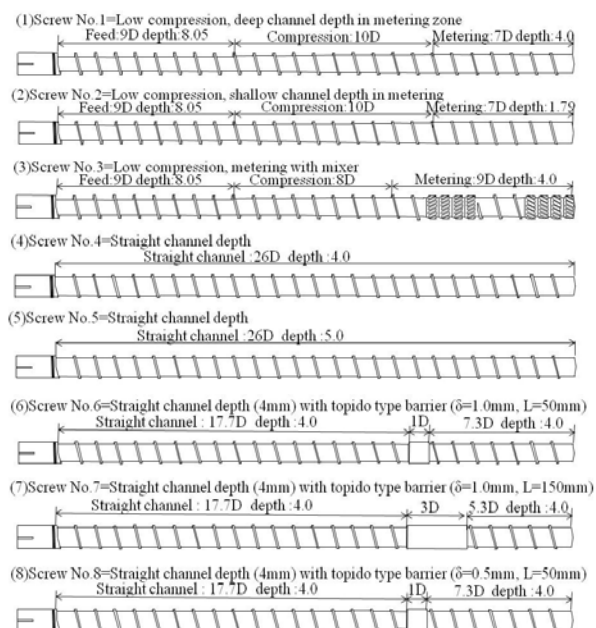 (1)Screw No.1=Low compression, deep channel depth in metering zone
Feed:9D depth:8.05 Compression:10D Metering:7D depth:4.0
(2)Screw No.2=Low compression, shallow channel depth in metering
Feed:9D depth:8.05 Compression:10D Metering:7D depth:1.79
(3)Screw No.3=Low compression, metering with mixer
Feed:9D depth:8.05 Compression:8D Metering:9D depth:4.0
(4)Screw No.4=Straight channel depth
Straight channel :26D depth :4.0
(5)Screw No.5=Straight channel depth
Straight channel :26D depth :5.0
(6)Screw No.6=Straight channel depth (4mm) with topido type barrier (δ=1.0mm, L=50mm)
Straight channel : 17.7D depth :4.0 1D 7.3D depth :4.0
(7)Screw No.7=Straight channel depth (4mm) with topido type barrier (δ=1.0mm, L=150mm)
Straight channel : 17.7D depth :4.0 3D 5.3D depth :4.0
(8)Screw No.8=Straight channel depth (4mm) with topido type barrier (δ=0.5mm, L=50mm)
Straight channel : 17.7D depth :4.0 1D 7.3D depth :4.0